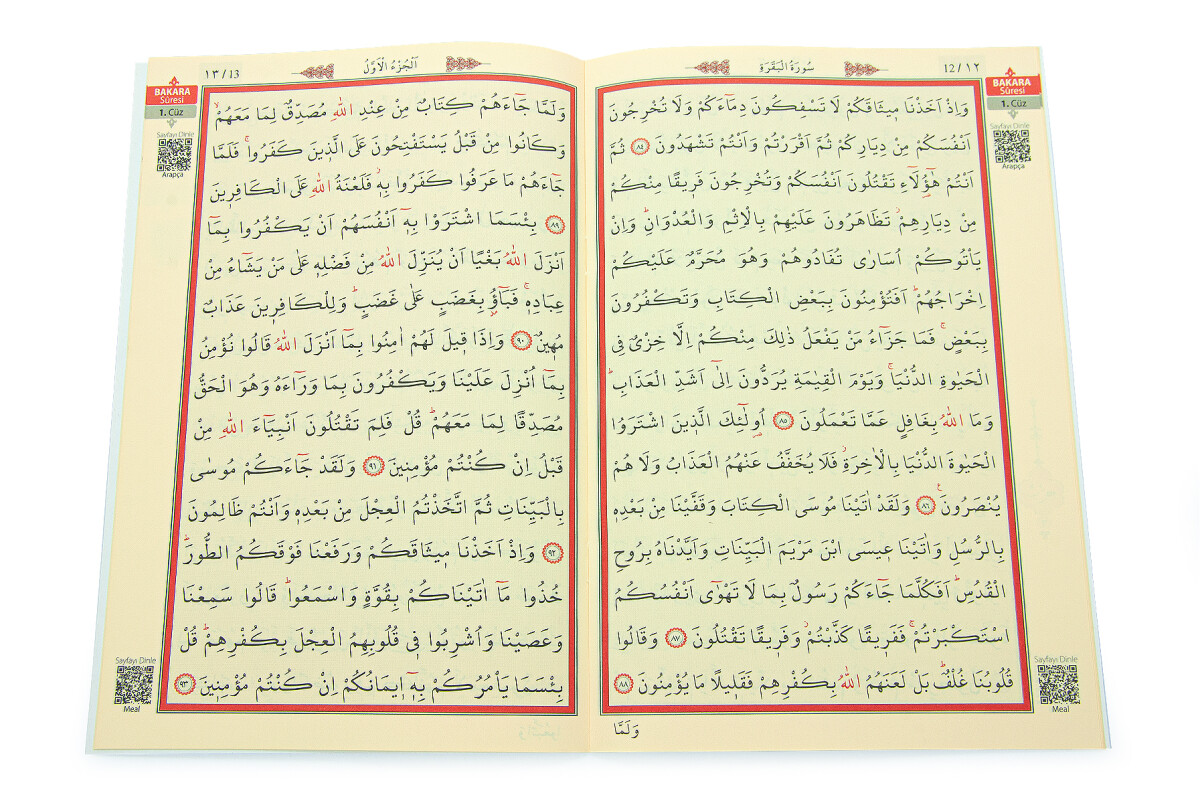 12/١٢
سُورَةُ الْبَقَرَةِ
BAKARA
Sûresi
1. Cüz
Sayfayı Dinle
Arapça
وَاِذْ اَخَذْنَا م۪يثَاقَكُمْ لَا تَسْفِكُونَ دِمَٓاءَكُمْ وَلَا تُخْرِجُونَ
اَنْفُسَكُمْ مِنْ دِيَارِكُمْ ثُمَّ اَقْرَرْتُمْ وَاَنْتُمْ تَشْهَدُونَ ﴿٨٤﴾ ثُمَّ
اَنْتُمْ هٰٓؤُ۬لَٓاءِ تَقْتُلُونَ اَنْفُسَكُمْ وَتُخْرِجُونَ فَر۪يقًا مِنْكُمْ
مِنْ دِيَارِهِمْۘ تَظَاهَرُونَ عَلَيْهِمْ بِالْاِثْمِ وَالْعُدْوَانِۜ وَاِنْ
يَأْتُوكُمْ اُسَارٰى تُفَادُوهُمْ وَهُوَ مُحَرَّمٌ عَلَيْكُمْ
اِخْرَاجُهُمْۜ اَفَتُؤْمِنُونَ بِبَعْضِ الْكِتَابِ وَتَكْفُرُونَ
بِبَعْضٍۚ فَمَا جَزَٓاءُ مَنْ يَفْعَلُ ذٰلِكَ مِنْكُمْ اِلَّا خِزْيٌ فِي
الْحَيٰوةِ الدُّنْيَاۚ وَيَوْمَ الْقِيٰمَةِ يُرَدُّونَ اِلٰٓى اَشَدِّ الْعَذَابِۜ
وَمَا اللّٰهُ بِغَافِلٍ عَمَّا تَعْمَلُونَ ﴿٨٥﴾ اُو۬لٰٓئِكَ الَّذ۪ينَ اشْتَرَوُا
الْحَيٰوةَ الدُّنْيَا بِالْاٰخِرَةِۘ فَلَا يُخَفَّفُ عَنْهُمُ الْعَذَابُ وَلَا هُمْ
يُنْصَرُونَ۟ ﴿٨٦﴾ وَلَقَدْ اٰتَيْنَا مُوسَى الْكِتَابَ وَقَفَّيْنَا مِنْ بَعْدِه۪
بِالرُّسُلِ وَاٰتَيْنَا ع۪يسَى ابْنَ مَرْيَمَ الْبَيِّنَاتِ وَاَيَّدْنَاهُ بِرُوحِ
الْقُدُسِۜ اَفَكُلَّمَا جَٓاءَكُمْ رَسُولٌ بِمَا لَا تَهْوٰٓى اَنْفُسُكُمُ
اسْتَكْبَرْتُمْۚ فَفَر۪يقًا كَذَّبْتُمْۘ وَفَر۪يقًا تَقْتُلُونَ ﴿٨٧﴾ وَقَالُوا
قُلُوبُنَا غُلْفٌۜ بَلْ لَعَنَهُمُ اللّٰهُ بِكُفْرِهِمْ فَقَل۪يلًا مَا يُؤْمِنُونَ ﴿٨٨﴾
Sayfayı Dinle
Meal
وَلَمَّا
١٣/13
اَلْجُزْءُ الْاَوَّلُ
BAKARA
Sûresi
1. Cüz
Sayfayı Dinle
Arapça
وَلَمَّا جَٓاءَهُمْ كِتَابٌ مِنْ عِنْدِ اللّٰهِ مُصَدِّقٌ لِمَا مَعَهُمْۙ
وَكَانُوا مِنْ قَبْلُ يَسْتَفْتِحُونَ عَلَى الَّذ۪ينَ كَفَرُواۚ فَلَمَّا
جَٓاءَهُمْ مَا عَرَفُوا كَفَرُوا بِه۪ۘ فَلَعْنَةُ اللّٰهِ عَلَى الْكَافِر۪ينَ
﴿٨٩﴾ بِئْسَمَا اشْتَرَوْا بِه۪ٓ اَنْفُسَهُمْ اَنْ يَكْفُرُوا بِمَٓا
اَنْزَلَ اللّٰهُ بَغْيًا اَنْ يُنَزِّلَ اللّٰهُ مِنْ فَضْلِه۪ عَلٰى مَنْ يَشَٓاءُ مِنْ
عِبَادِه۪ۚ فَبَٓاؤُ۫ بِغَضَبٍ عَلٰى غَضَبٍۜ وَلِلْكَافِر۪ينَ عَذَابٌ
مُه۪ينٌ ﴿٩٠﴾ وَاِذَا ق۪يلَ لَهُمْ اٰمِنُوا بِمَٓا اَنْزَلَ اللّٰهُ قَالُوا نُؤْمِنُ
بِمَٓا اُنْزِلَ عَلَيْنَا وَيَكْفُرُونَ بِمَا وَرَٓاءَهُ وَهُوَ الْحَقُّ
مُصَدِّقًا لِمَا مَعَهُمْۜ قُلْ فَلِمَ تَقْتُلُونَ اَنْبِيَٓاءَ اللّٰهِ مِنْ
قَبْلُ اِنْ كُنْتُمْ مُؤْمِن۪ينَ ﴿٩١﴾ وَلَقَدْ جَٓاءَكُمْ مُوسٰى
بِالْبَيِّنَاتِ ثُمَّ اتَّخَذْتُمُ الْعِجْلَ مِنْ بَعْدِه۪ وَاَنْتُمْ ظَالِمُونَ
﴿٩٢﴾ وَاِذْ اَخَذْنَا م۪يثَاقَكُمْ وَرَفَعْنَا فَوْقَكُمُ الطُّورَۜ
خُذُوا مَٓا اٰتَيْنَاكُمْ بِقُوَّةٍ وَاسْمَعُواۜ قَالُوا سَمِعْنَا
وَعَصَيْنَا وَاُشْرِبُوا ف۪ي قُلُوبِهِمُ الْعِجْلَ بِكُفْرِهِمْۜ قُلْ
بِئْسَمَا يَأْمُرُكُمْ بِه۪ٓ ا۪يمَانُكُمْ اِنْ كُنْتُمْ مُؤْمِن۪ينَ ﴿٩٣﴾
Sayfayı Dinle
Meal